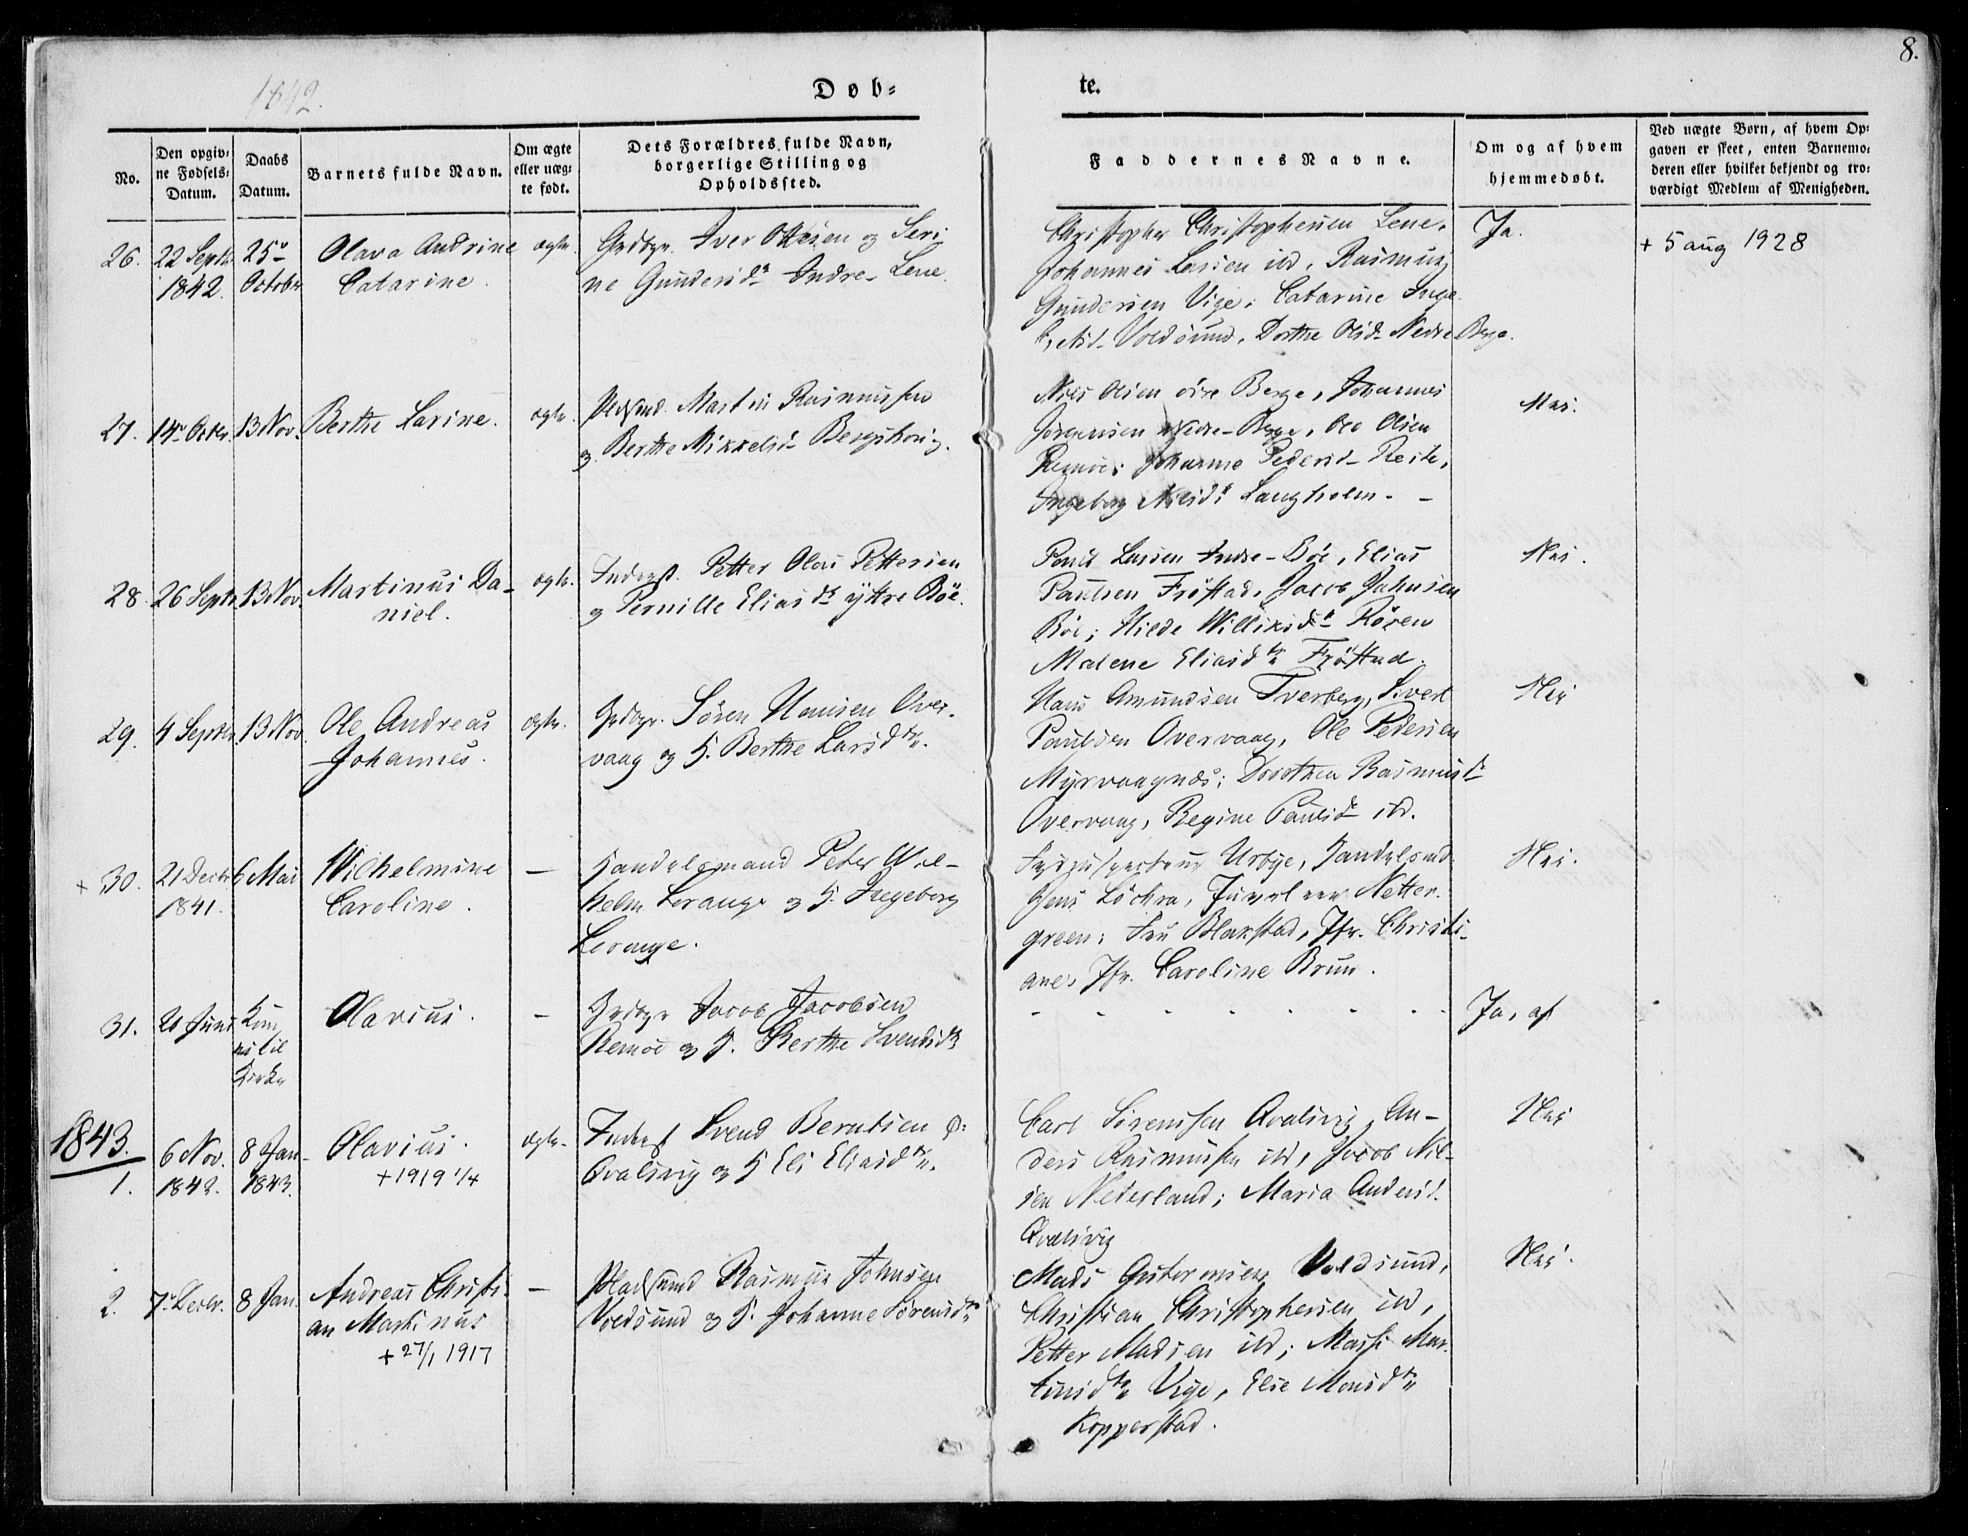 1842.
Døb-
te.
8.
No.
Den opgiv-
ne Fødsels-
Datum.
Daabs
Datum.
Barnets fulde Navn.
Om ægte
eller uæg-
te født.
Dets Forældres fulde Navn,
borgerlige Stilling og
Opholdssted.
Faddernes Navne.
Om og af hvem
hjemmedøbt.
Ved uægte Børn, af hvem Op-
gaven er skeet, enten Barnemo-
deren eller hvilket bekjendt og tro-
værdigt Medlem af Menigheden.
26.
22 Septr
1842.
25de
Octobr
Olava Andrine
Catarine.
ægte.
Grdbgr. Iver Ottesen og Seri-
ne Gundersdr Indre-Lene.
Christopher Christophersen Lene,
Johannes Larsen ibd, Rasmus
Gundersen Vige; Catarine Inge-
Voldsund, Dorthe Olsd. Nedre Berge.
Ja.
+ 5 aug 1928
27.
14de Octbr
13 Nov.
Berthe Larine.
ægte.
Pladsmd. Martin Rasmussen
og Berthe Mikkelsd. Bergshoug.
Nils Olsen øvre Berge, Johannes
Jørgensen Nedre-Berge, Ole Olsen
Remøe; Johanne Pedersd. Reite,
Ingeborg Nilsdr Langholm.
Nei.
28.
26 Septr
13 Nov.
Martinus Da-
niel.
ægte.
Inderst. Petter Olai Pettersen
og Pernille Eliasdr yttre Bøe.
Poul Larsen Indre-Bøe, Elias
Paulsen Frøstad, Jacob Johnsen
Bøe; Hilde Willixsdr Røren
Malene Eliasdtr Frøstad.
Nei.
29.
4 Septbr
13 Nov
Ole Andreas
Johannes.
ægte.
Grdbgr. Søren Hansen Over-
vaag og H. Berthe Larsdtr.
Hans Amundsen Tverberg, Sivert
Paulsen Overvaag, Ole Pedersen
Myrvaagnes; Dorthea Rasmusdr
Overvaag, Regine Paulsdr ibd.
Nei
+ 30.
21 Decbr
1841.
6 Mai
Wilhelmine
Caroline.
—
Handelsmand Peter Wil-
helm Lorange og H. Ingeborg
Lorange.
Urbye, Handelsmd
Jens Løchra, Netter-
green; Fru Blakstad, Jfr. Christi-
ane, Jfr. Caroline Brun.
Nei.
31.
20 Juni
Kom
ei til
Kirke
Olavius.
—
Grdbgr Jacob Jacobsen
Remøe og H. Berthe Svendsdtr
Ja, af
1843.
1.
6 Nov.
1842.
8 Jan.
1843.
Olavius.
+ 1919 1/4
ægte.
Inderst Svend Berntsen
Qvalsvig og H Eli Eliasdtr.
Carl Sørensen Qvalsvig, An-
ders Rasmussen ibd, Jacob Nil-
sen Nederland; Maria Andersd.
Qvalsvig
Nei
2.
7de Decbr.
8 Jan.
Andreas Christi-
an Martinus
+ 27/1 1917
—
Pladsmd Rasmus Johnsen
Voldsund og H. Johanne Sørensdtr
Mads Voldsund,
Christian Christophersen ibd,
Petter Madsen ibd; Marthe Mar-
tinsdtr Vige, Else Monsdtr
Kopperstad.
Nei.